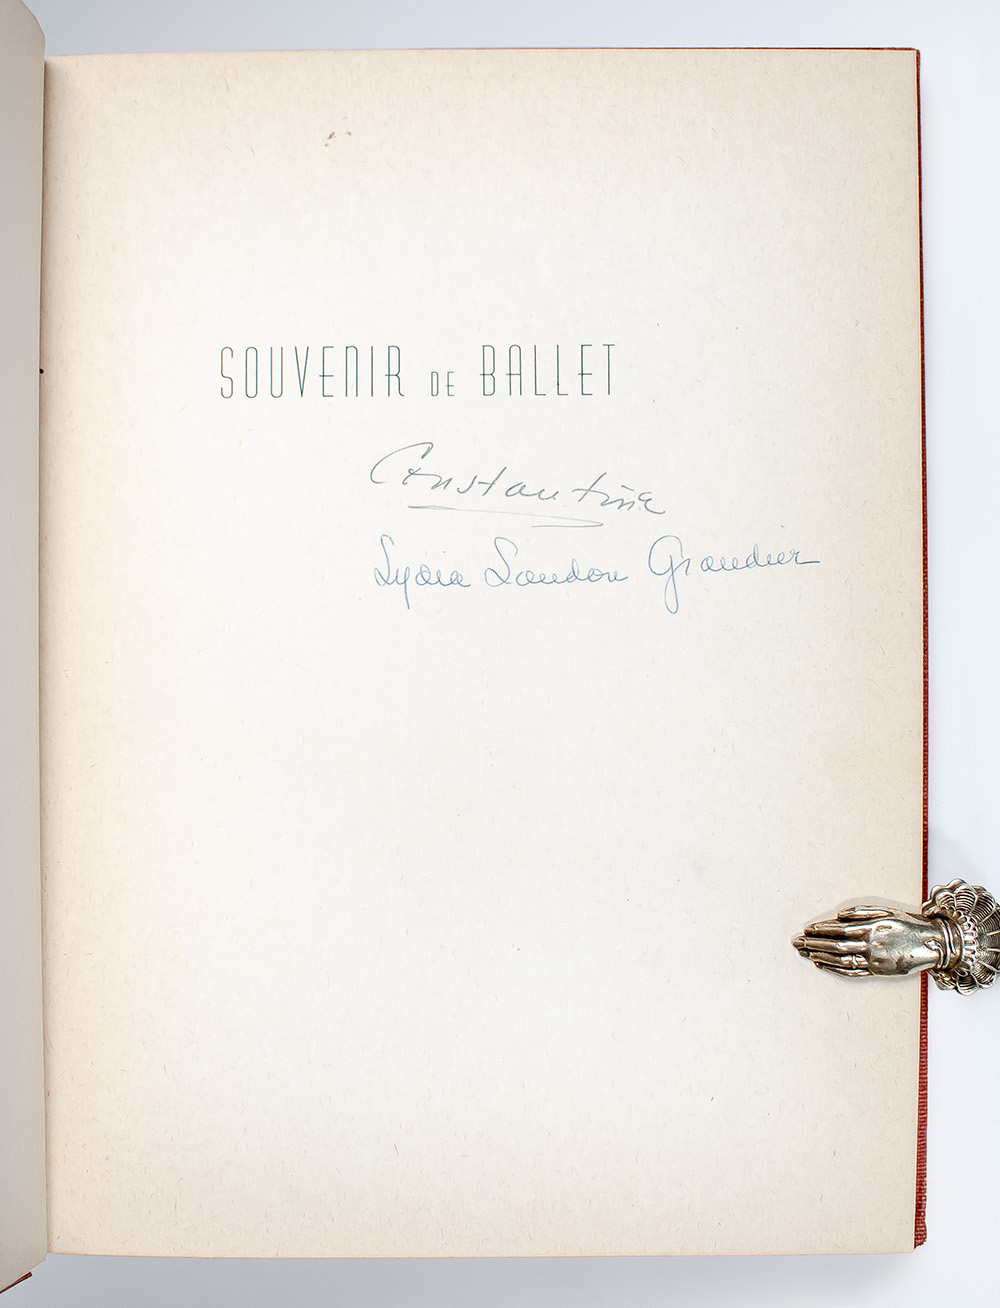 SOUVENIR DE BALLET
Constantine
Lydia Loudon Grandier